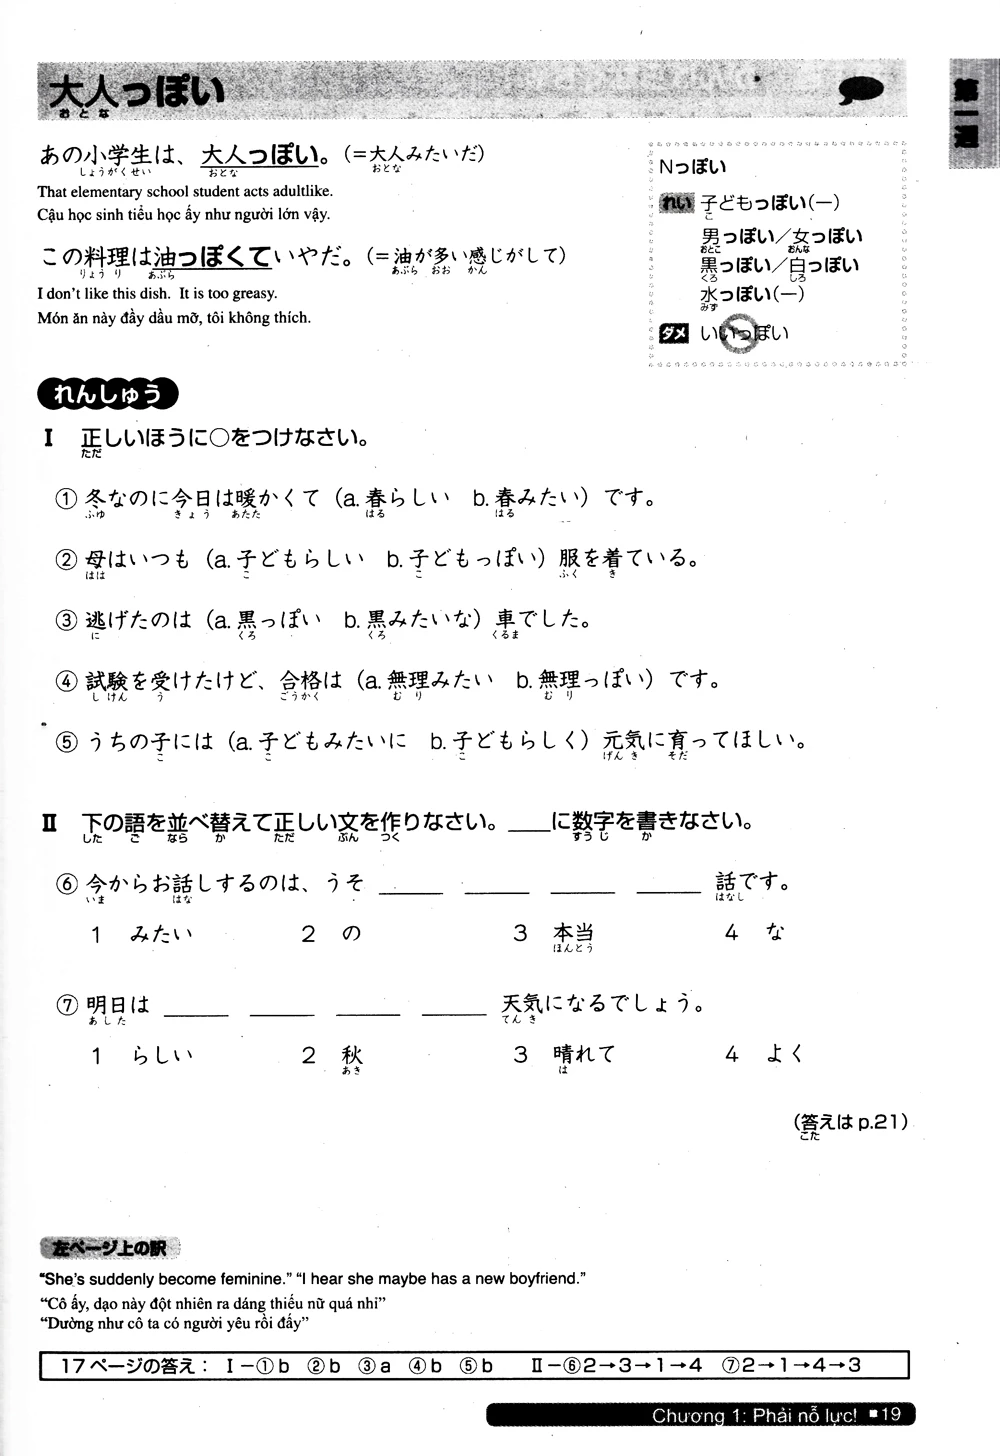 大人っぽい
おとな
第一週
あの小学生は、大人っぽい。(=大人みたいだ)
しょうがくせい おとな おとな
That elementary school student acts adultlike.
Cậu học sinh tiểu học ấy như người lớn vậy.
この料理は油っぽくていやだ。(=油が多い感じがして)
りょうり あぶら あぶら おお かん
I don't like this dish. It is too greasy.
Món ăn này đầy dầu mỡ, tôi không thích.
Nっぽい
れい 子どもっぽい(ー)
こ
男っぽい/女っぽい
おとこ おんな
黒っぽい/白っぽい
くろ しろ
水っぽい(ー)
みず
ダメ いいっぽい
れんしゅう
I 正しいほうに○をつけなさい。
ただ
① 冬なのに今日は暖かくて (a. 春らしい b. 春みたい) です。
ふゆ きょう あたた はる はる
② 母はいつも (a. 子どもらしい b. 子どもっぽい) 服を着ている。
はは こ こ ふく き
③ 逃げたのは (a. 黒っぽい b. 黒みたいな) 車でした。
に くろ くろ くるま
④ 試験を受けたけど、合格は (a. 無理みたい b. 無理っぽい) です。
しけん う ごうかく むり むり
⑤ うちの子には (a. 子どもみたいに b. 子どもらしく) 元気に育ってほしい。
こ こ こ げんき そだ
II 下の語を並べ替えて正しい文を作りなさい。____に数字を書きなさい。
した ご なら か ただ ぶん つく すうじ か
⑥ 今からお話しするのは、うそ ____ ____ ____ ____ 話です。
いま はな はなし
1 みたい 2 の 3 本当 4 な
ほんとう
⑦ 明日は ____ ____ ____ ____ 天気になるでしょう。
あした てんき
1 らしい 2 秋 3 晴れて 4 よく
あき は
(答えは p.21)
こた
左ページ上の訳
"She's suddenly become feminine." "I hear she maybe has a new boyfriend."
"Cô ấy, dạo này đột nhiên ra dáng thiếu nữ quá nhỉ"
"Dường như cô ta có người yêu rồi đấy"
17ページの答え: I-①b ②b ③a ④b ⑤b II-⑥2→3→1→4 ⑦2→1→4→3
Chương 1: Phải nỗ lực! ■19